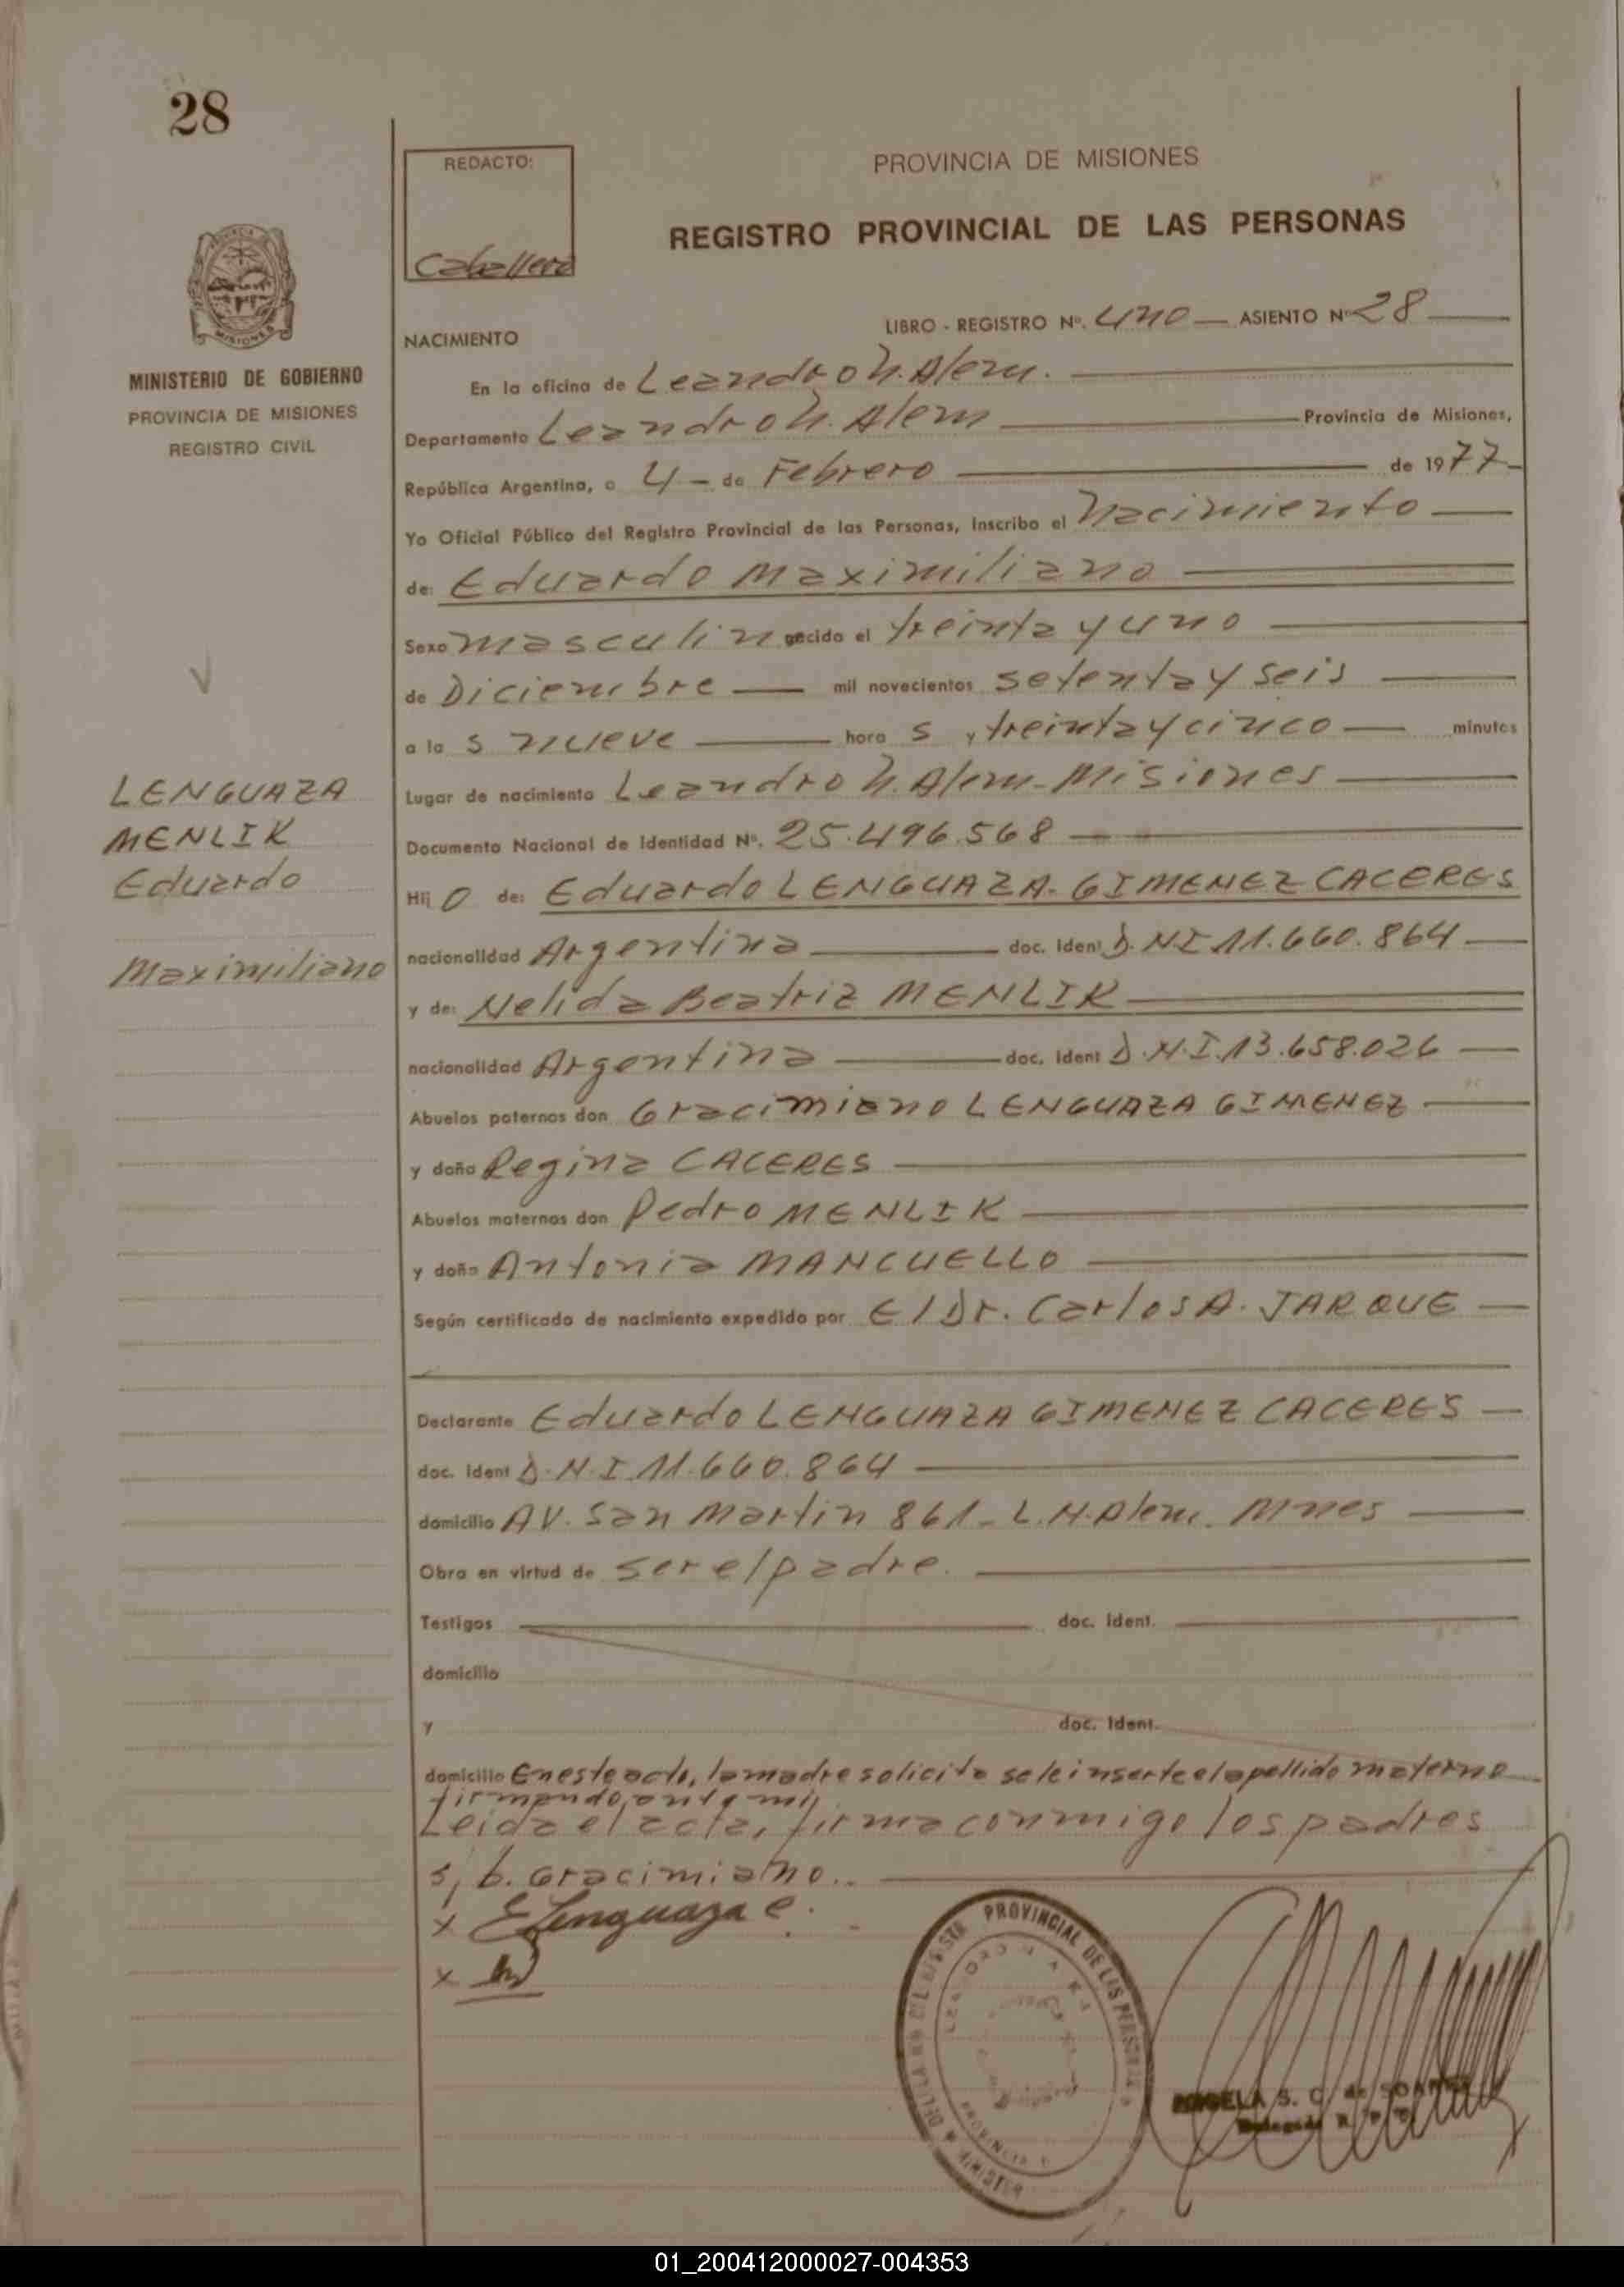 28
REDACTO:
Caballero
PROVINCIA DE MISIONES
REGISTRO PROVINCIAL DE LAS PERSONAS
MINISTERIO DE GOBIERNO
PROVINCIA DE MISIONES
REGISTRO CIVIL
LIBRO - REGISTRO Nº. uno ASIENTO Nº 28
NACIMIENTO
En la oficina de Leandro N. Alem.
Departamento Leandro N. Alem Provincia de Misiones,
República Argentina, a 4 - de Febrero de 1977
Yo Oficial Público del Registro Provincial de las Personas, Inscribo el Nacimiento
de: Eduardo Maximiliano
Sexo masculin nacido el treinta y uno
de Diciembre mil novecientos setenta y seis
a la s nueve hora s y treinta y cinco minutos
Lugar de nacimiento Leandro N. Alem - Misiones
Documento Nacional de Identidad Nº. 25.496.568
LENGUAZA
MENLIK
Eduardo
Maximiliano
Hij o de: Eduardo LENGUAZA - GIMENEZ CACERES
nacionalidad Argentina doc. Ident D.N.I 11.660.864
y de: Nelida Beatriz MENLIK
nacionalidad Argentina doc. Ident D.N.I. 13.658.026
Abuelos paternos don Gracimiano LENGUAZA GIMENEZ
y doña Regina CACERES
Abuelos maternos don Pedro MENLIK
y doña Antonia MANCUELLO
Según certificado de nacimiento expedido por El Dr. Carlos A. JARQUE
Declarante Eduardo LENGUAZA GIMENEZ CACERES
doc. Ident D.N.I. 11.660.864
domicilio AV. San Martin 861 - L.N. Alem. Mnes
Obra en virtud de ser el padre.
Testigos doc. Ident.
domicilio
y doc. Ident.
domicilio En este acto, la madre solicita se le inserte el apellido materno
firmando, ante mi,
Leida el acta, firma conmigo los padres
s, b. Gracimiano..
x E Lenguaza C.
x
PROVINCIAL DE LAS PERSONAS
S. C. de SOARES
01_200412000027-004353